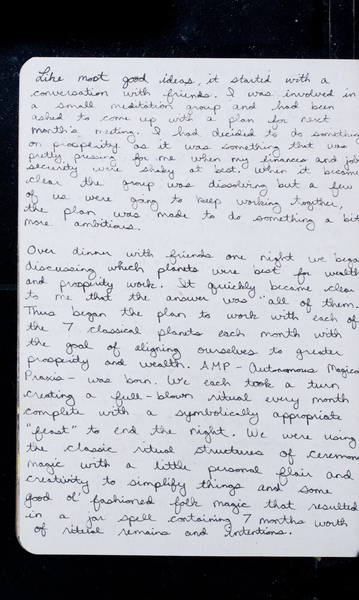 Like most good ideas, it started with a
conversation with friends. I was involved in
a small meditation group and had been
asked to come up with a plan for next
month's meeting. I had decided to do something
on prosperity as it was something that was
pretty pressing for me when my finances and job
security were shaky at best. When it became
clear the group was dissolving but a few
of us were going to keep working together,
the plan was made to do something a bit
more ambitious.

Over dinner with friends one night we began
discussing which planets were best for wealth
and prosperity work. It quickly became clear
to me that the answer was "all of them."
Thus began the plan to work with each of
the 7 classical planets each month with
the goal of aligning ourselves to greater
prosperity and wealth. AMP - Autonomous Magical
Praxis - was born. We each took a turn
creating a full-blown ritual every month
complete with a symbolically appropriate
"feast" to end the night. We were using
the classic ritual structures of ceremonial
magic with a little personal flair and
creativity to simplify things and some
good ol' fashioned folk magic that resulted
in a jar spell containing 7 months worth
of ritual remains and intentions.